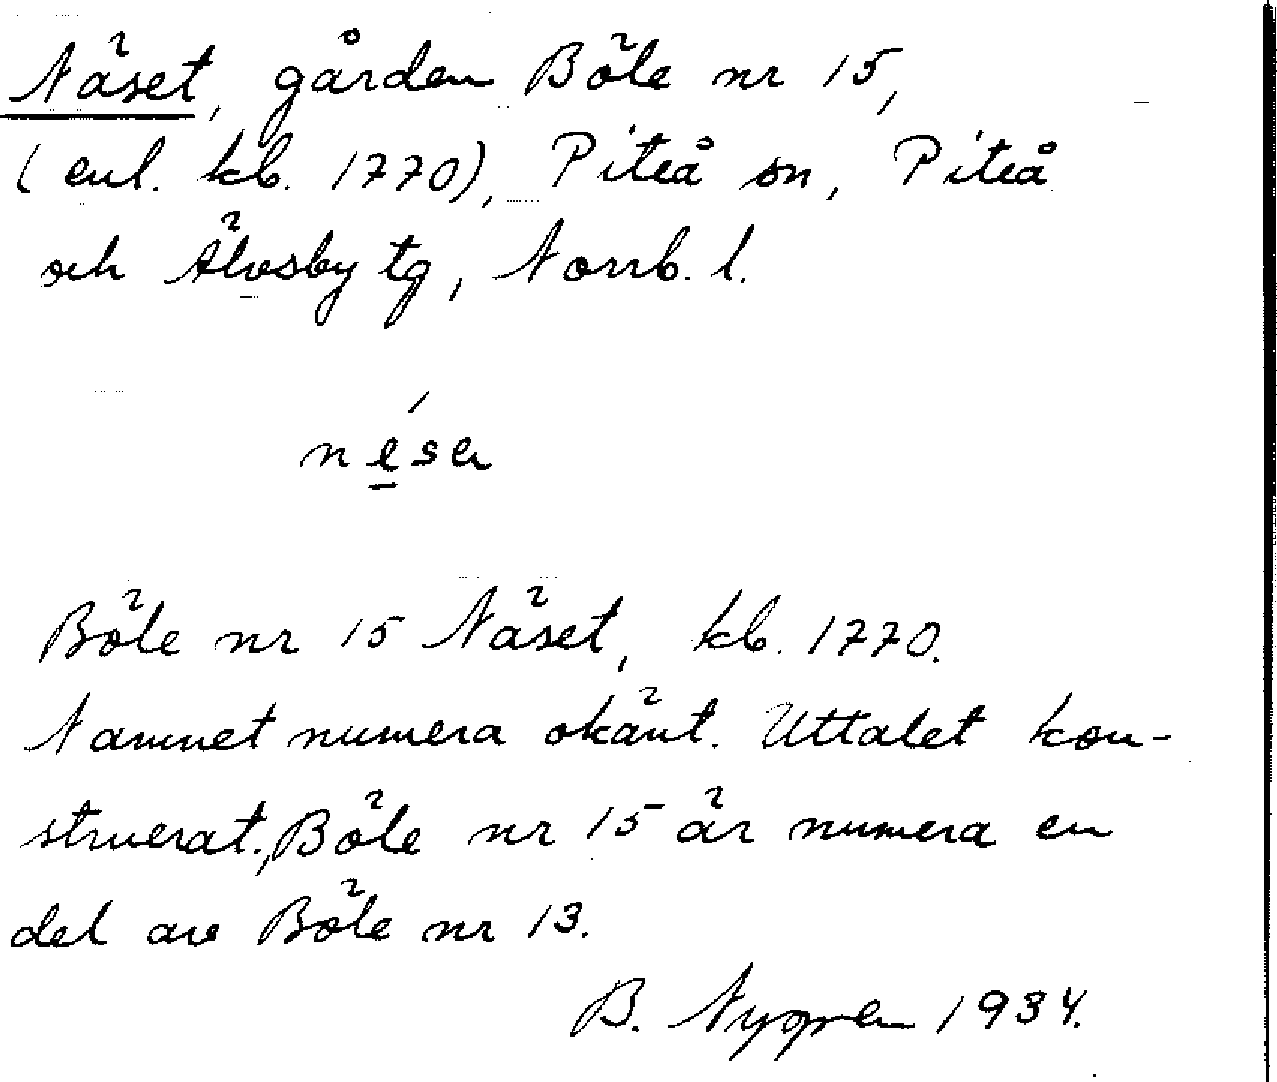 Näset, gården Böle nr 15,
(enl. kb. 1770), Piteå sn, Piteå
och Älvsby tg, Norrb. l.
Böle nr 15 Näset, kb. 1770.
Namnet numera okänt. Uttalet kon-
struerat. Böle nr 15 är numera en
del av Böle nr 13.
B. Nygren 1934.